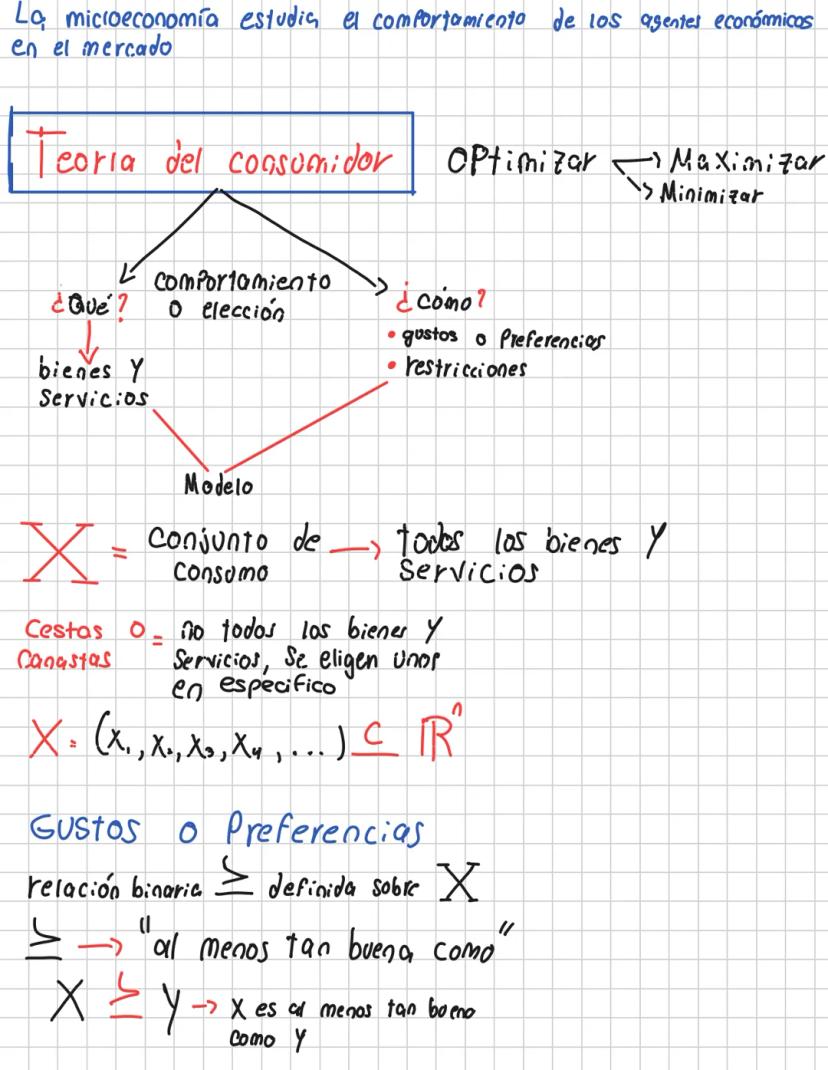 La microeconomía estudia el comportamiento de los agentes económicos
en el mercado
Teoria del consumidor
OPtimizar → Maximizar
→ Minimizar
¿Qué?
comportamiento
o elección
¿cómo?
• gustos o Preferencias
• restricciones
bienes y
servicios
Modelo
X = conjunto de → todos los bienes y
consumo servicios
Cestas o = no todos los bienes y
canastas servicios, se eligen unos
en especifico
X = (x₁, x₂, x₃, x₄, ...) ⊆ ℝⁿ
Gustos o Preferencias
relación binaria ≽ definida sobre X
≽ → "al menos tan buena como"
X ≽ y → x es al menos tan bueno
como y